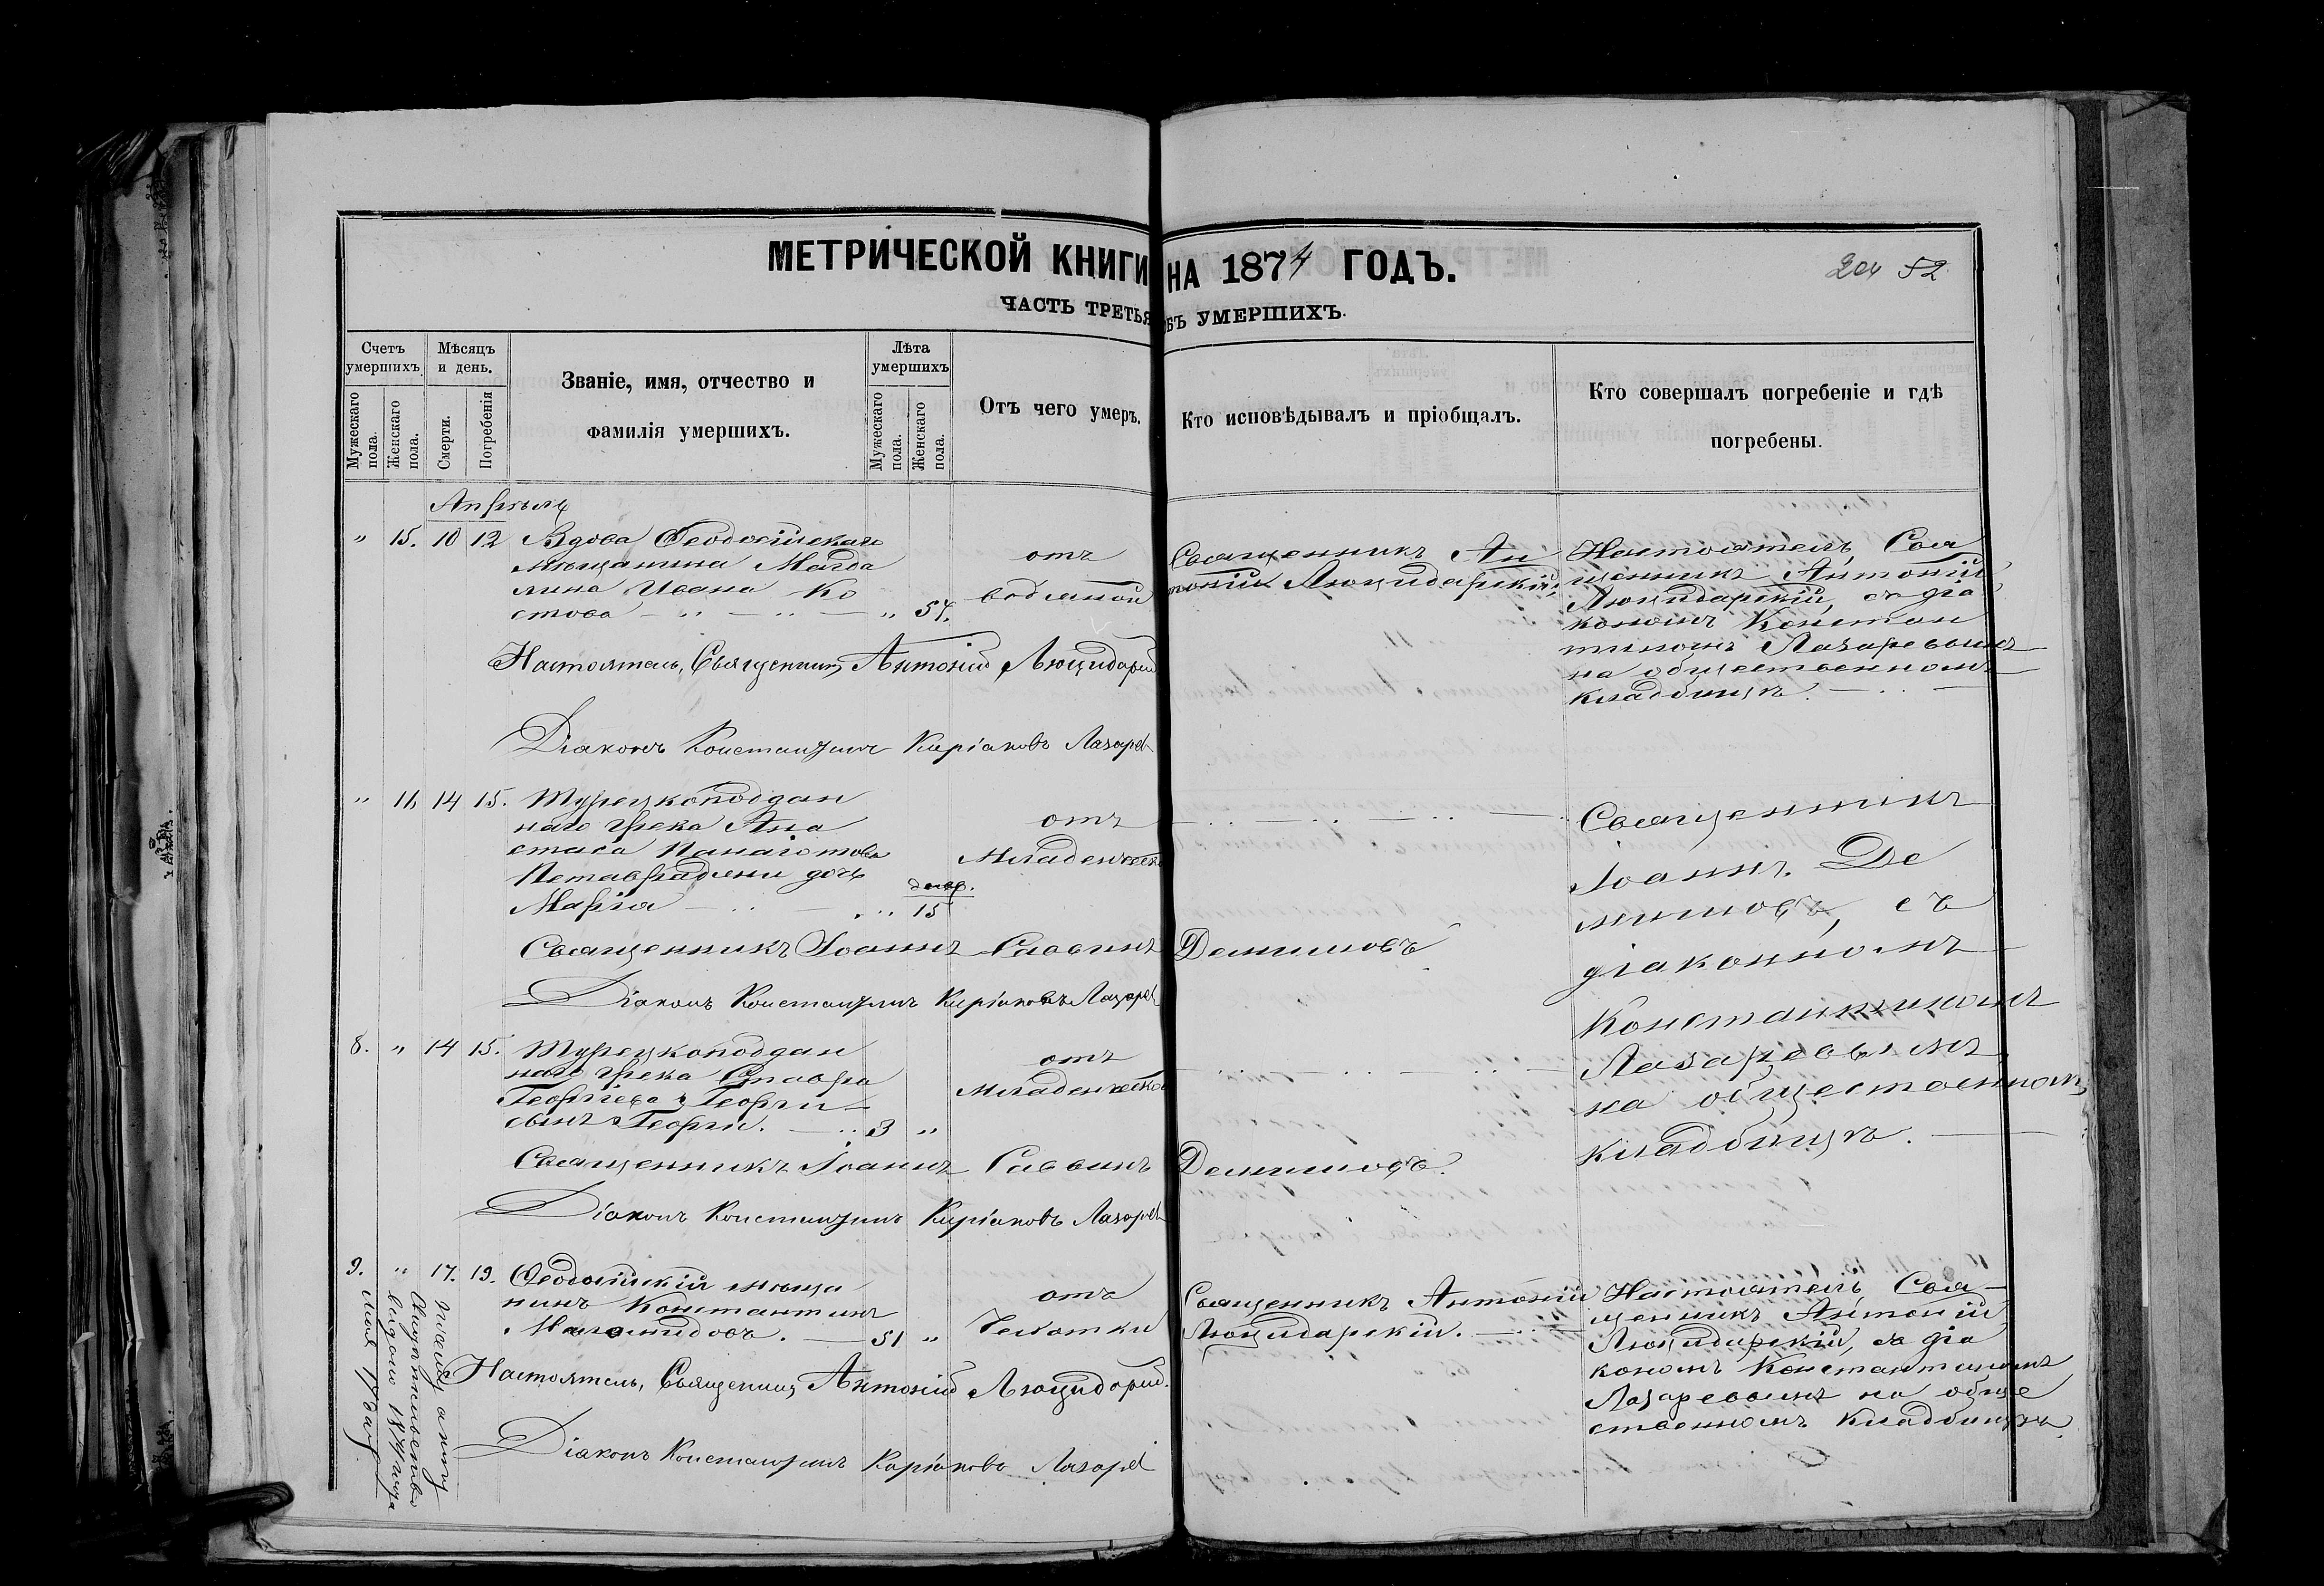 МЕТРИЧЕСКОЙ КНИГИ НА 1874 ГОДЪ.
52
ЧАСТЬ ТРЕТЬЯ ОБЪ УМЕРШИХЪ.
Счетъ умершихъ.
Мужескаго пола.
Женскаго пола.
Мѣсяцъ и день.
Смерти.
Погребенія
Званіе, имя, отчество и
фамилія умершихъ.
Лѣта умершихъ
Мужескаго пола.
Женскаго пола.
Отъ чего умеръ.
Кто исповѣдывалъ и пріобщалъ.
Кто совершалъ погребеніе и гдѣ
погребены.
Апрѣль
" 15. 10 12 Вдова Ѳеодосійскаго
мѣщанина Магда
лина Ивана Ко
стова " 54.
отъ
водяной
Священникъ Ан
тоній Люцидарскій,
Настоятель, Свя
щенникъ Антоній
Люцидарскій, съ діа
кономъ Констан
тиномъ Лазаревымъ
на общественномъ
кладбищѣ.
Настоятель, Священникъ Антоній Люцидарскій
Діаконъ Константинъ Киріаковъ Лазарев
" 16 14 15. Турецкоподдан
наго Грека Ана
стаса Панаготова
дочь
Марія " 15
отъ
младенческой
Священникъ
Іоаннъ Де
мишовъ, съ
діакономъ
Константиномъ
Лазаревымъ
на общественномъ
кладбищѣ.
Священникъ Іоаннъ Саввинъ Демишовъ
Діаконъ Константинъ Киріаковъ Лазарев
8. " 14 15. Турецкоподдан
наго Грека Ставра
Георгіева Георги
сынъ Георги. 3 "
отъ
младенческой
Священникъ Іоаннъ Саввинъ Демишовъ.
Діаконъ Константинъ Киріаковъ Лазарев
9. " 17. 19. Ѳеодосійскій мѣща
нинъ Константинъ
51 "
отъ
Чехотки
Священникъ Антоній
Люцидарскій.
Настоятель, Свя-
щенникъ Антоній
Люцидарскій, съ діа
кономъ Константиномъ
Лазаревымъ на обще
ственномъ кладбищѣ.
Настоятель, Священникъ Антоній Люцидарскій.
Діаконъ Константинъ Киріаковъ Лазарев